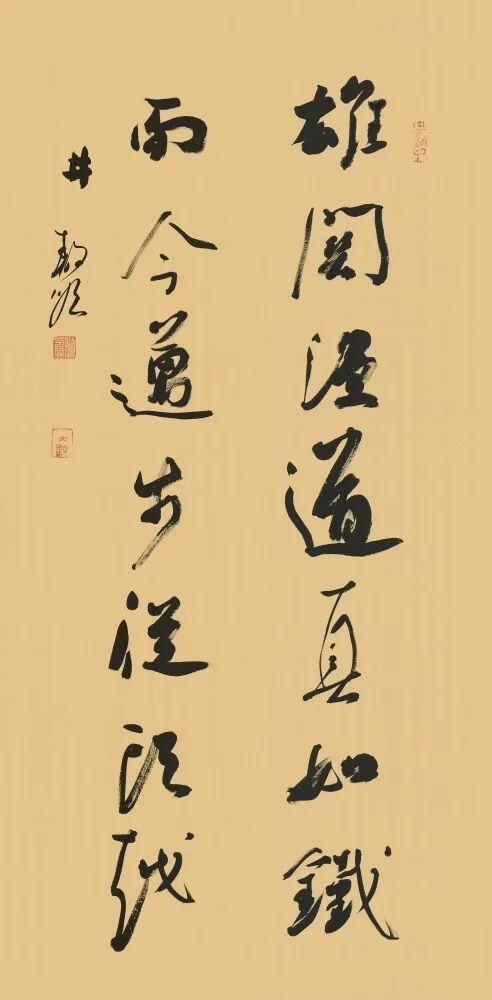 雄關漫道真如鐵
而今邁步從頭越
井